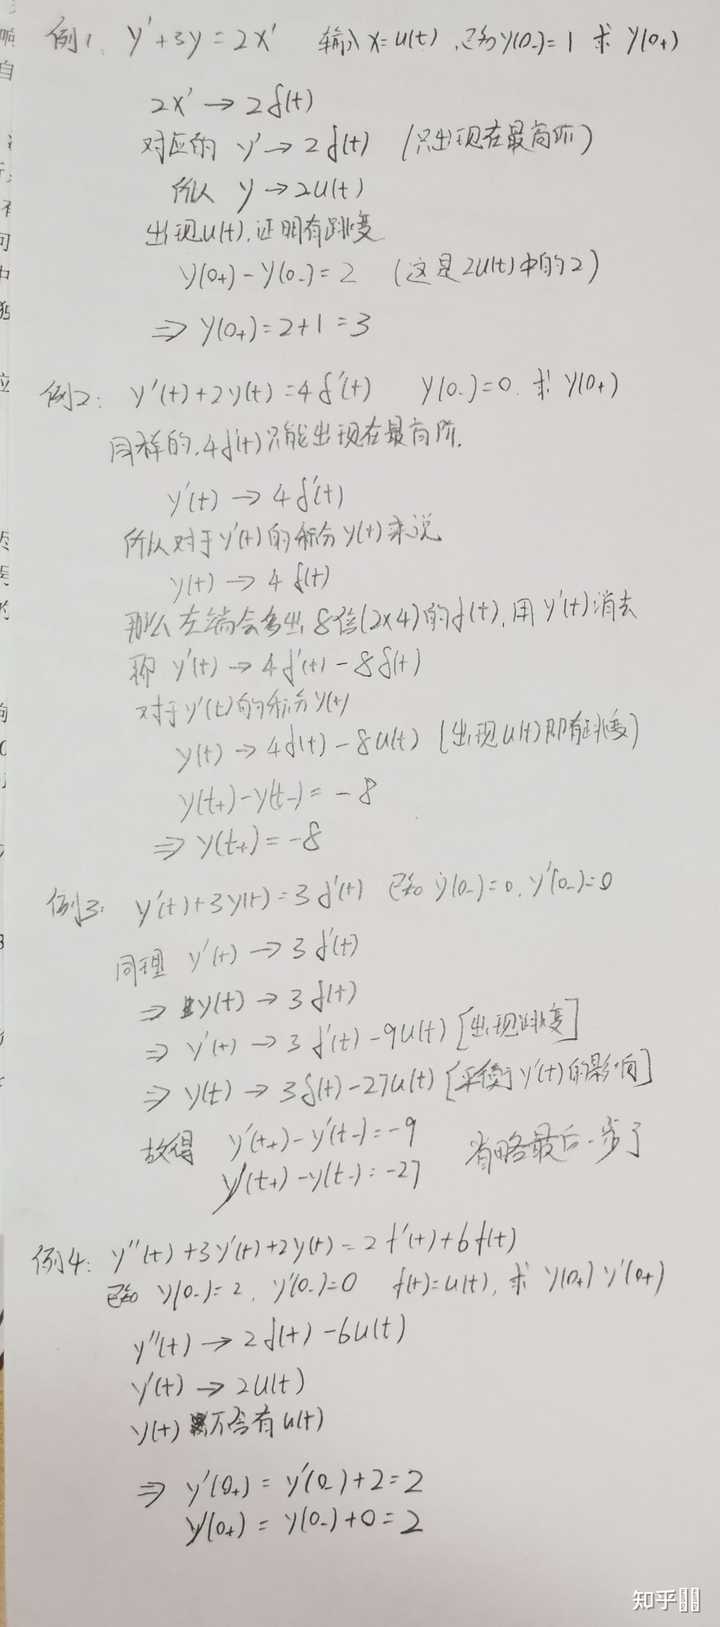 例1. y'+3y=2x' 输入x=u(t),已知y(0-)=1 求 y(0+)
2x'→2δ(t)
对应的 y'→2δ(t) (只出现在最高阶)
所以 y→2u(t)
出现u(t),证明有跳变
y(0+)-y(0-)=2 (这是2u(t)中的2)
⇒ y(0+)=2+1=3
例2: y'(t)+2y(t)=4δ'(t) y(0-)=0. 求 y(0+)
同样的,4δ'(t)只能出现在最高阶.
y'(t)→4δ'(t)
所以对于y'(t)的积分y(t)来说
y(t)→4δ(t)
那么左端会多出8倍(2x4)的δ(t),用y'(t)消去
即 y'(t)→4δ'(t)-8δ(t)
对于y'(t)的积分y(t)
y(t)→4δ(t)-8u(t) (出现u(t)即有跳变)
y(t+)-y(t-)=-8
⇒ y(t+)=-8
例3: y'(t)+3y(t)=3δ'(t) 已知 y(0-)=0. y'(0-)=0
同理 y'(t)→3δ'(t)
⇒ y(t)→3δ(t)
⇒ y'(t)→3δ'(t)-9u(t) [出现跳变]
⇒ y(t)→3δ(t)-27u(t) [平衡y'(t)的影响]
故得 y'(t+)-y'(t-)=-9
y(t+)-y(t-)=-27 省略最后一步了
例4: y''(t)+3y'(t)+2y(t)=2f'(t)+6f(t)
已知 y(0-)=2, y'(0-)=0 f(t)=u(t), 求 y(0+) y'(0+)
y''(t)→2δ(t)-6u(t)
y'(t)→2u(t)
y(t) 不含有u(t)
⇒ y'(0+)=y'(0-)+2=2
y(0+)=y(0-)+0=2
知乎